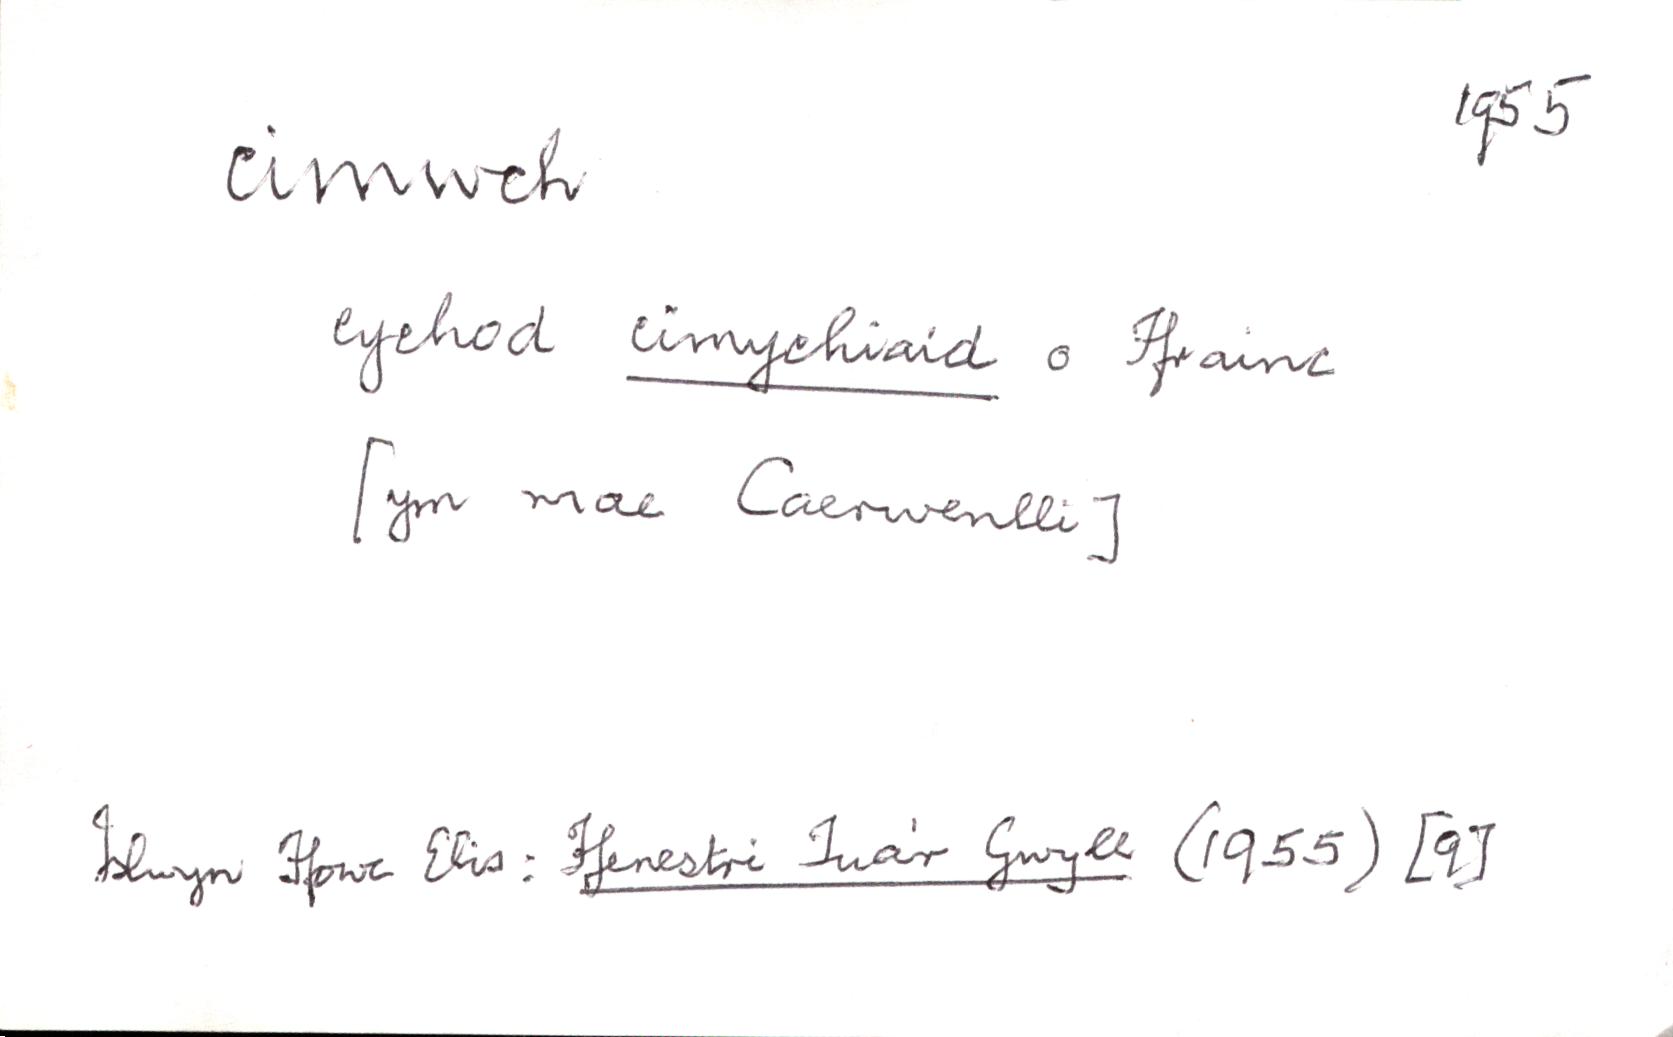 1955
cimwch
cychod cimychiaid o Ffrainc
[ym mae Caerwenlli]
Islwyn Ffowc Elis: Ffenestri Tua'r Gwyll (1955) [9]